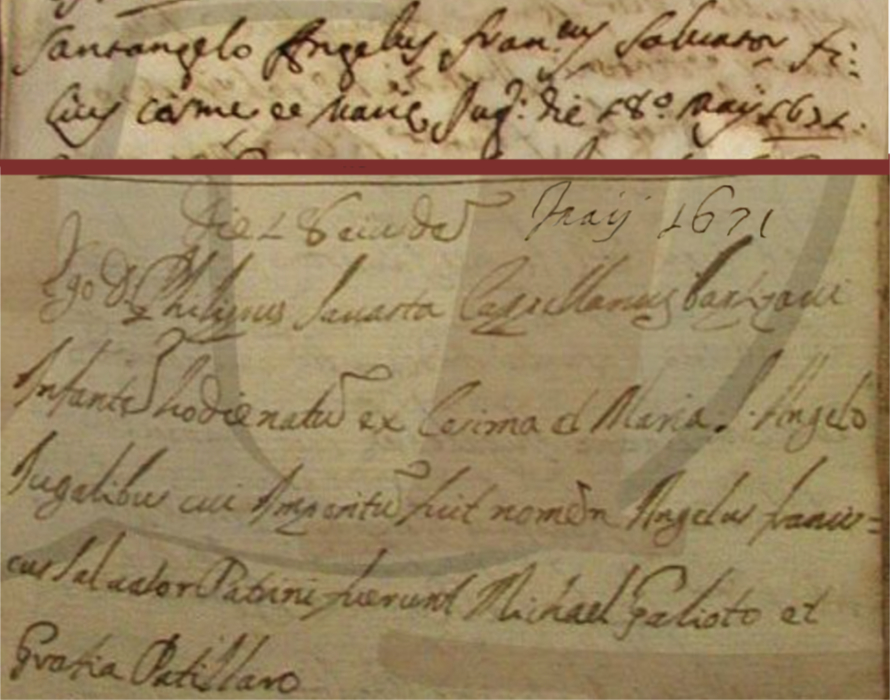 Santangelo Angelus Fran.cus Salvator fi:
lius Cosme et Marię Jug: die 18º Maij 1671.
Die 18 eiusdẽ Maij 1671
Ego D. Philipus Sauarta Cappellanus baptizaui
Infantẽ hodie natũ ex Cosima et Maria S. Angelo
Jugalibus cui Impositũ fuit nomẽn Angelus francis=
cus Saluator Patrini fuerunt Michael Galioto et
Gratia Patillaro